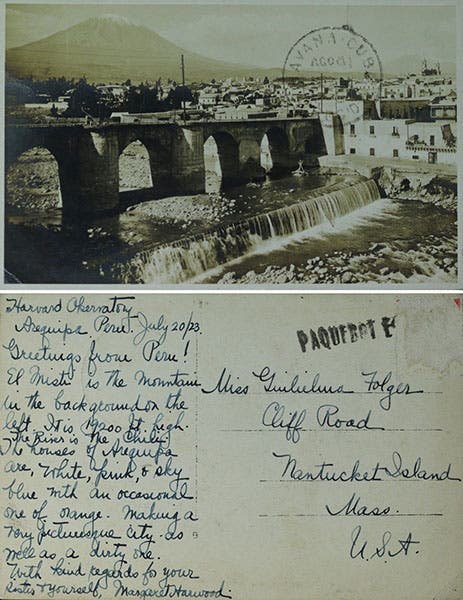 HAVANA · CUB
AGO 8
Harvard Observatory
Arequipa Peru. July 20/23.
Greetings from Peru!
El Misti is the Mountain
in the background on the
left. It is 19200 ft high.
The River is the Chili
The houses of Arequipa
are, White, pink, & sky
blue with an occasional
one of orange. Making a
very picturesque city. as
well as a dirty one.
With kind regards for your
sister & yourself, Margaret Harwood.
PAQUEBOT
Miss Guilielma Folger
Cliff Road
Nantucket Island
Mass.
U.S.A.